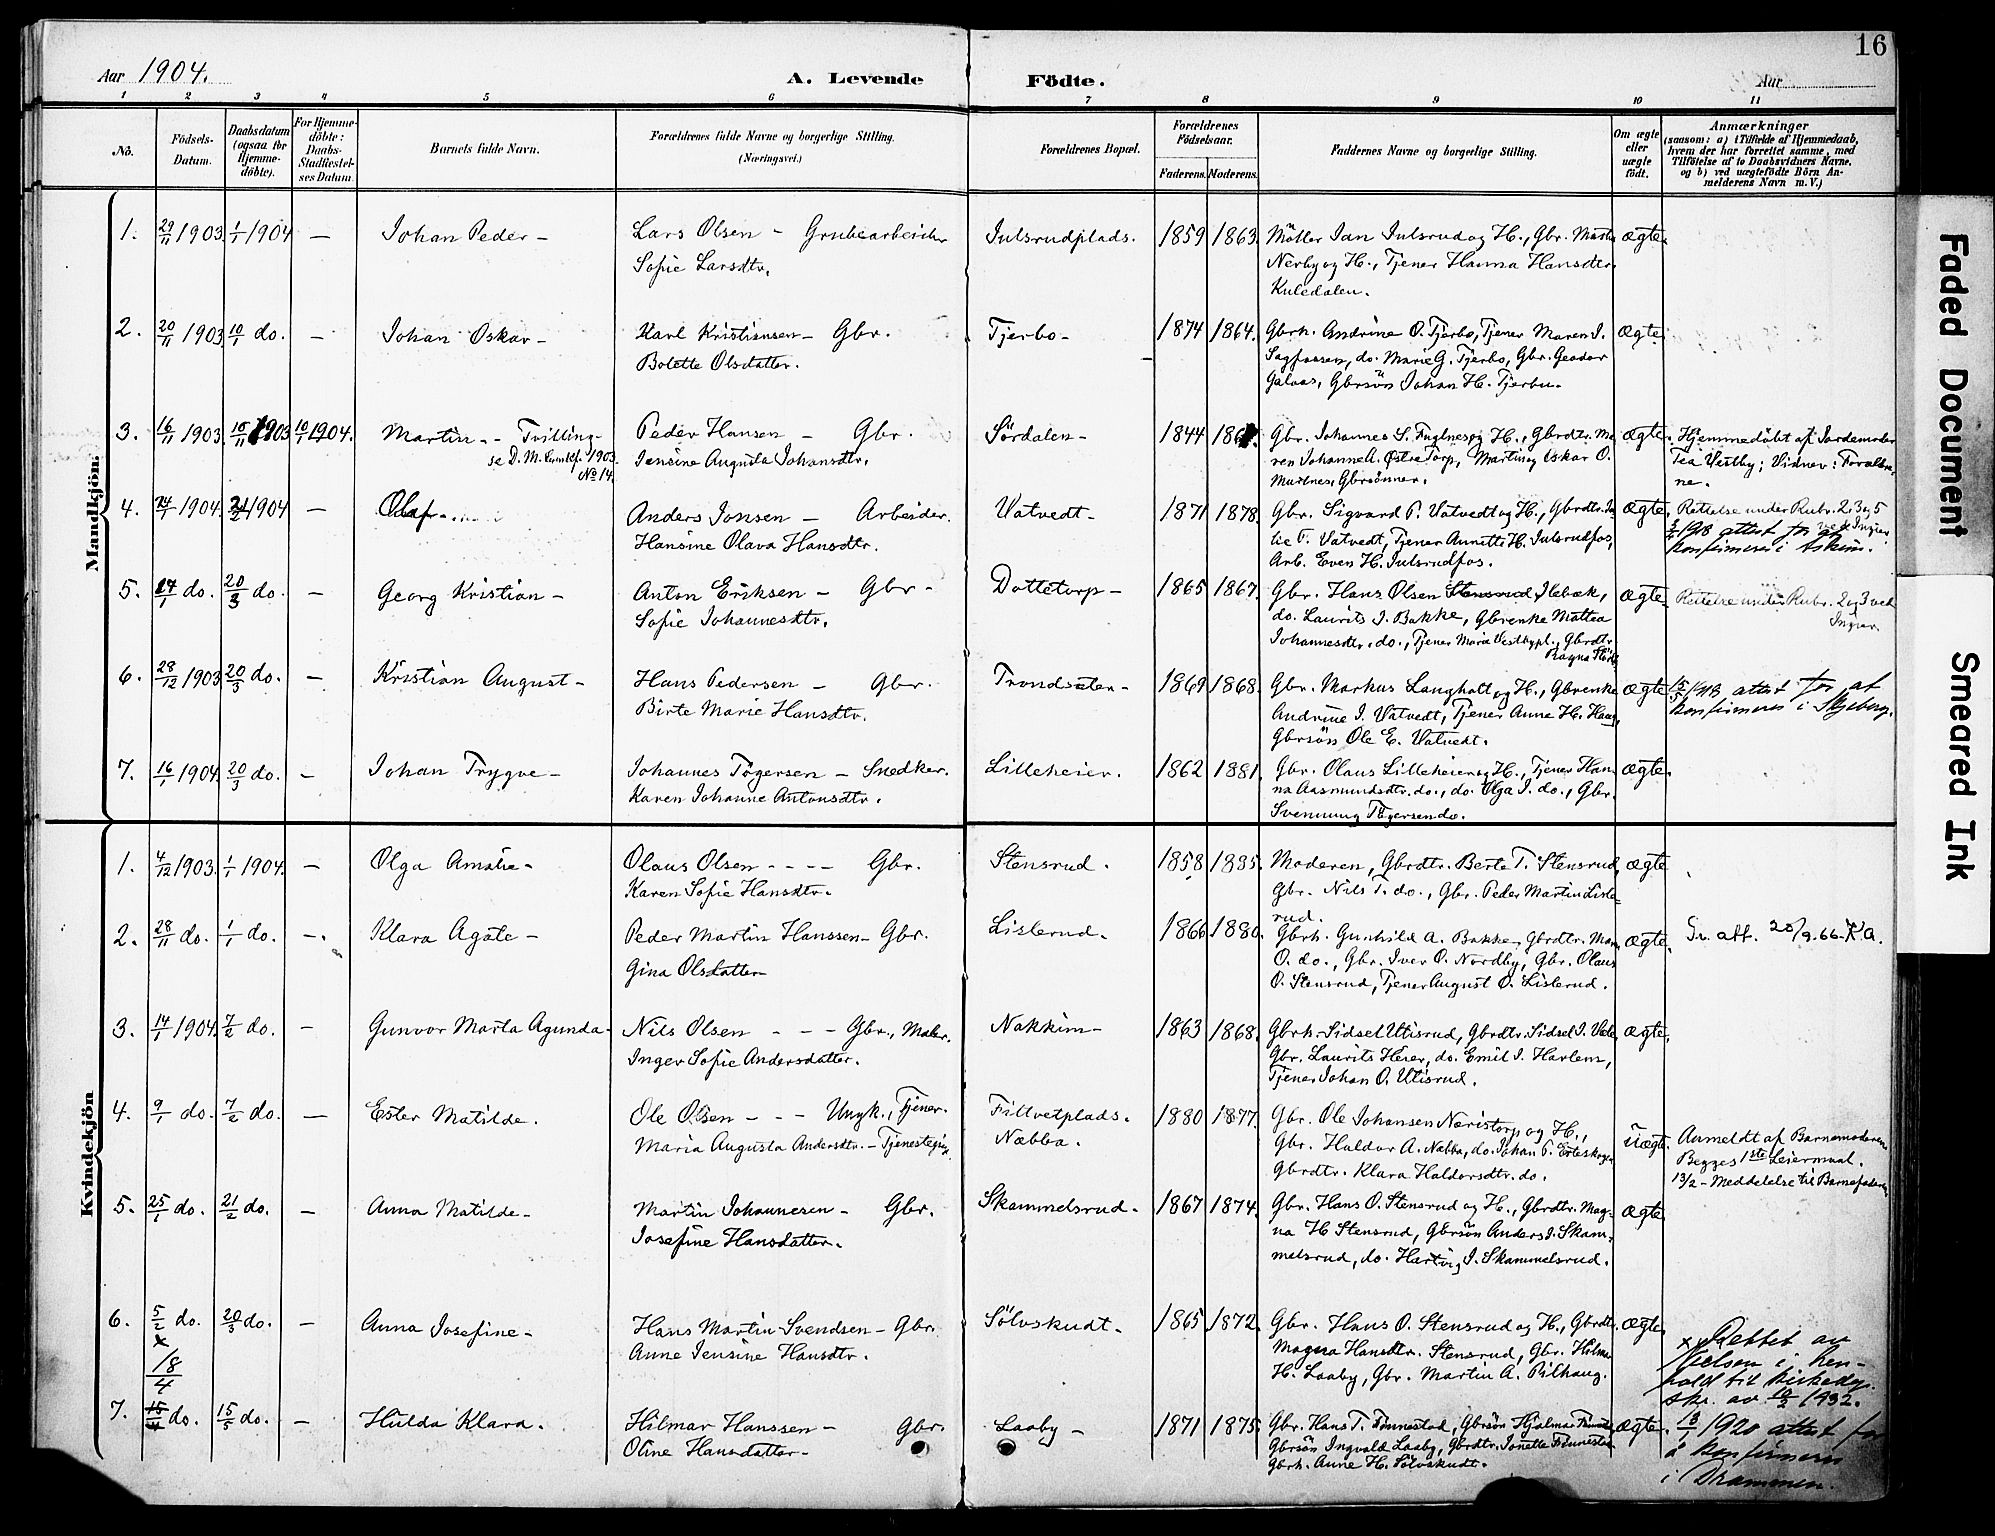 16
Aar 1904. A. Levende Födte. Aar
1 2 3 4 5 6 7 8 9 10 11
No. Födsels-Datum. Daabsdatum (ogsaa for Hjemme-döbte). For Hjemme-döbte: Daabs-Stadfæstel-ses Datum. Barnets fulde Navn. Forældrenes fulde Navne og borgerlige Stilling. (Næringsvei.) Forældrenes Bopæl. Forældrenes Födselsaar. Faderens. Moderens. Faddernes Navne og borgerlige Stilling. Om ægte eller uægte födt. Anmærkninger (saasom: a) i Tilfælde af Hjemmedaab, hvem der har forrettet samme, med Tilföielse af to Daabsvidners Navne, og b) ved uægtefödte Börn An-melderens Navn m. V.)
Mandkjön.
1. 29/11 1903 1/1 1904 — Johan Peder - Lars Olsen - Grubearbeider Julsrudplads. 1859 1863. Möller Jan Julsrud og H., Gbr. ægte.
Sofie Larsdtr. Nerby og H., Tjener Hanna Hansdtr.
Kuledalen.
2. 20/11 1903 10/1 do. - Johan Oskar - Karl Kristiansen - Gbr. Tjerbo - 1874 1864. Gbrk. Andrine O. Tjerbo, Tjener Maren I. ægte
Bolette Olsdatter. Sagfossen, do. Marie G. Tjerbo, Gbr.
Gbrsön Johan H. Tjerbu.
3. 16/11 1903 1903 10/1 1904. Martin - Tvilling - Peder Hansen - Gbr. Sördalen - 1844 Gbr. Johannes S. og H., Gbrdtr. Ma- ægte. Hjemmedöbt af Jordemoder
se D. M. 1903. Jensine Augusta Johansdtr. ren Johanne A. Østre Torp, Martin og Oskar O. Tea Vestby; Vidner: Foræld-
No 14. Gbrsönner. ne.
4. 24/1 1904. 1904 - Olaf Anders Jonsen - Arbeider. Vatvedt - 1871 1878. Gbr. Sigvard P. Vatvedt og H., Gbrdtr. Ju- ægte. Rettelse under Rubr. 2, 3 og 5
Hansine Olava Hansdtr. lie P. Vatvedt, Tjener Annette H. Julsrudfos, 1918 attest for at
Arb. Even H. Julsrudfos. konfirmeres i Askim.
5. do. 20/3 do. - Georg Kristian - Anton Eriksen - Gbr - Dottetorp - 1865 1867. Gbr. Hans Olsen Stensrud Ilebæk, ægte. Rettelse under Rubr. 2 og 3 ved
Sofie Johannesdtr. do. Laurits J. Bakke, Gbrenke Mattea
Johannesdtr. do., Tjener Maria Vestbypl., Gbrdtr.
Ragna
6. 28/12 1903 20/3 do. - Kristian August - Hans Pedersen - Gbr. Trondsæter - 1869 1868. Gbr. Markus Langholt og H., Gbrenke ægte 15/5 1918 attest for at
Birte Marie Hansdtr. Andrine I. Vatvedt, Tjener Anne H. Haug, konfirmeres i Skjeberg.
Gbrsön Ole E. Vatvedt.
7. 16/1 1904. 20/3 do. - Johan Trygve - Johannes Tögersen - Snedker. Lilleheier. 1862 1881. Gbr. Olaus Lilleheier og H., Tjener Han- ægte.
Karen Johanne Antonsdtr. na Aasmundsdtr. do., do. Olga I. do., Gbr.
Svennung Tögersen do.
Kvindekjön
1. 4/12 1903. 1/1 1904. - Olga Amalie - Olaus Olsen - - - Gbr. Stensrud. 1858 Moderen, Gbrdtr. Berte T. Stensrud, ægte
Karen Sofie Hansdtr. Gbr. Nils T. do., Gbr. Peder Martin Lisle-
rud.
2. 28/11 do. 1/1 do. - Klara Agate - Peder Martin Hanssen - Gbr. Lislerud. 1866 1880. Gbrk. Gunhild A. Bakke, Gbrdtr. ægte. att. 20/9.66. K.A.
Gina Olsdatter O. do., Gbr. Iver O. Nordby, Gbr. Olaus
O. Stensrud, Tjener August O. Lislerud.
3. 14/1 1904. 7/2 do. - Gunvor Marta Agunda - Nils Olsen - - - Gbr., Maler. Nakkim - 1863 1868. Gbrk. Sidsel Utisrud, Gbrdtr. Sidsel I. ægte.
Inger Sofie Andersdatter. Gbr. Laurits Heier, do. Emil I. Harlem,
Tjener Johan O. Utisrud.
4. 9/1 do. 7/2 do. - Ester Matilde. Ole Olsen - - - Ungk., Tjener. Fittvetplads. 1880 1877. Gbr. Ole Johansen Neristorp og H.,
Maria Augusta Andersdtr. - Tjenestepige. Næbba. Gbr. Haldor A. Næbba, do. Johan P. uægte. Anmeldt af Barnemoderen
Gbrdtr. Klara Haldorsdtr. do. Begges 1ste Leiermaal.
13/2 - Meddelelse til Barnefaderen
5. 25/1 do. 21/2 do. - Anna Matilde - Martin Johannesen - Gbr. Skammelsrud. 1867 1874. Gbr. Hans O. Stensrud og H., Gbrdtr. Mag- ægte
Josefine Hansdatter. na H. Stensrud, Gbrsön Anders I. Skam-
melsrud, do. Hartvig I. Skammelsrud.
6. 5/2 do. 20/3 do. - Anna Josefine - Hans Martin Svendsen - Gbr. Sölvskudt - 1865 1872. Gbr. Hans O. Stensrud og H., Gbrdtr. ægte.
x 18/4 Anne Jensine Hansdtr. Magna Hansdtr. Stensrud, Gbr. Hilmar x Rettet av
H. Laaby, Gbr. Martin A. Pilhaug. Nielsen i hen-
hold til kirkedep.
skr. av 10/2 1932.
7. 15/4 do. 15/5 do. - Hulda Klara. Hilmar Hanssen - Gbr. Laaby - 1871 1875. Gbr. Hans T. Finnestad, Gbrsön Hjalmar ægte. 13/1 1920 attest for
Oline Hansdatter - Gbrsön Ingvald Laaby, Gbrdtr. Jonette Finnestad, å konfirmeres
Gbrk. Anne H. Sölvskudt. i Drammen.
Faded Document
Smeared Ink